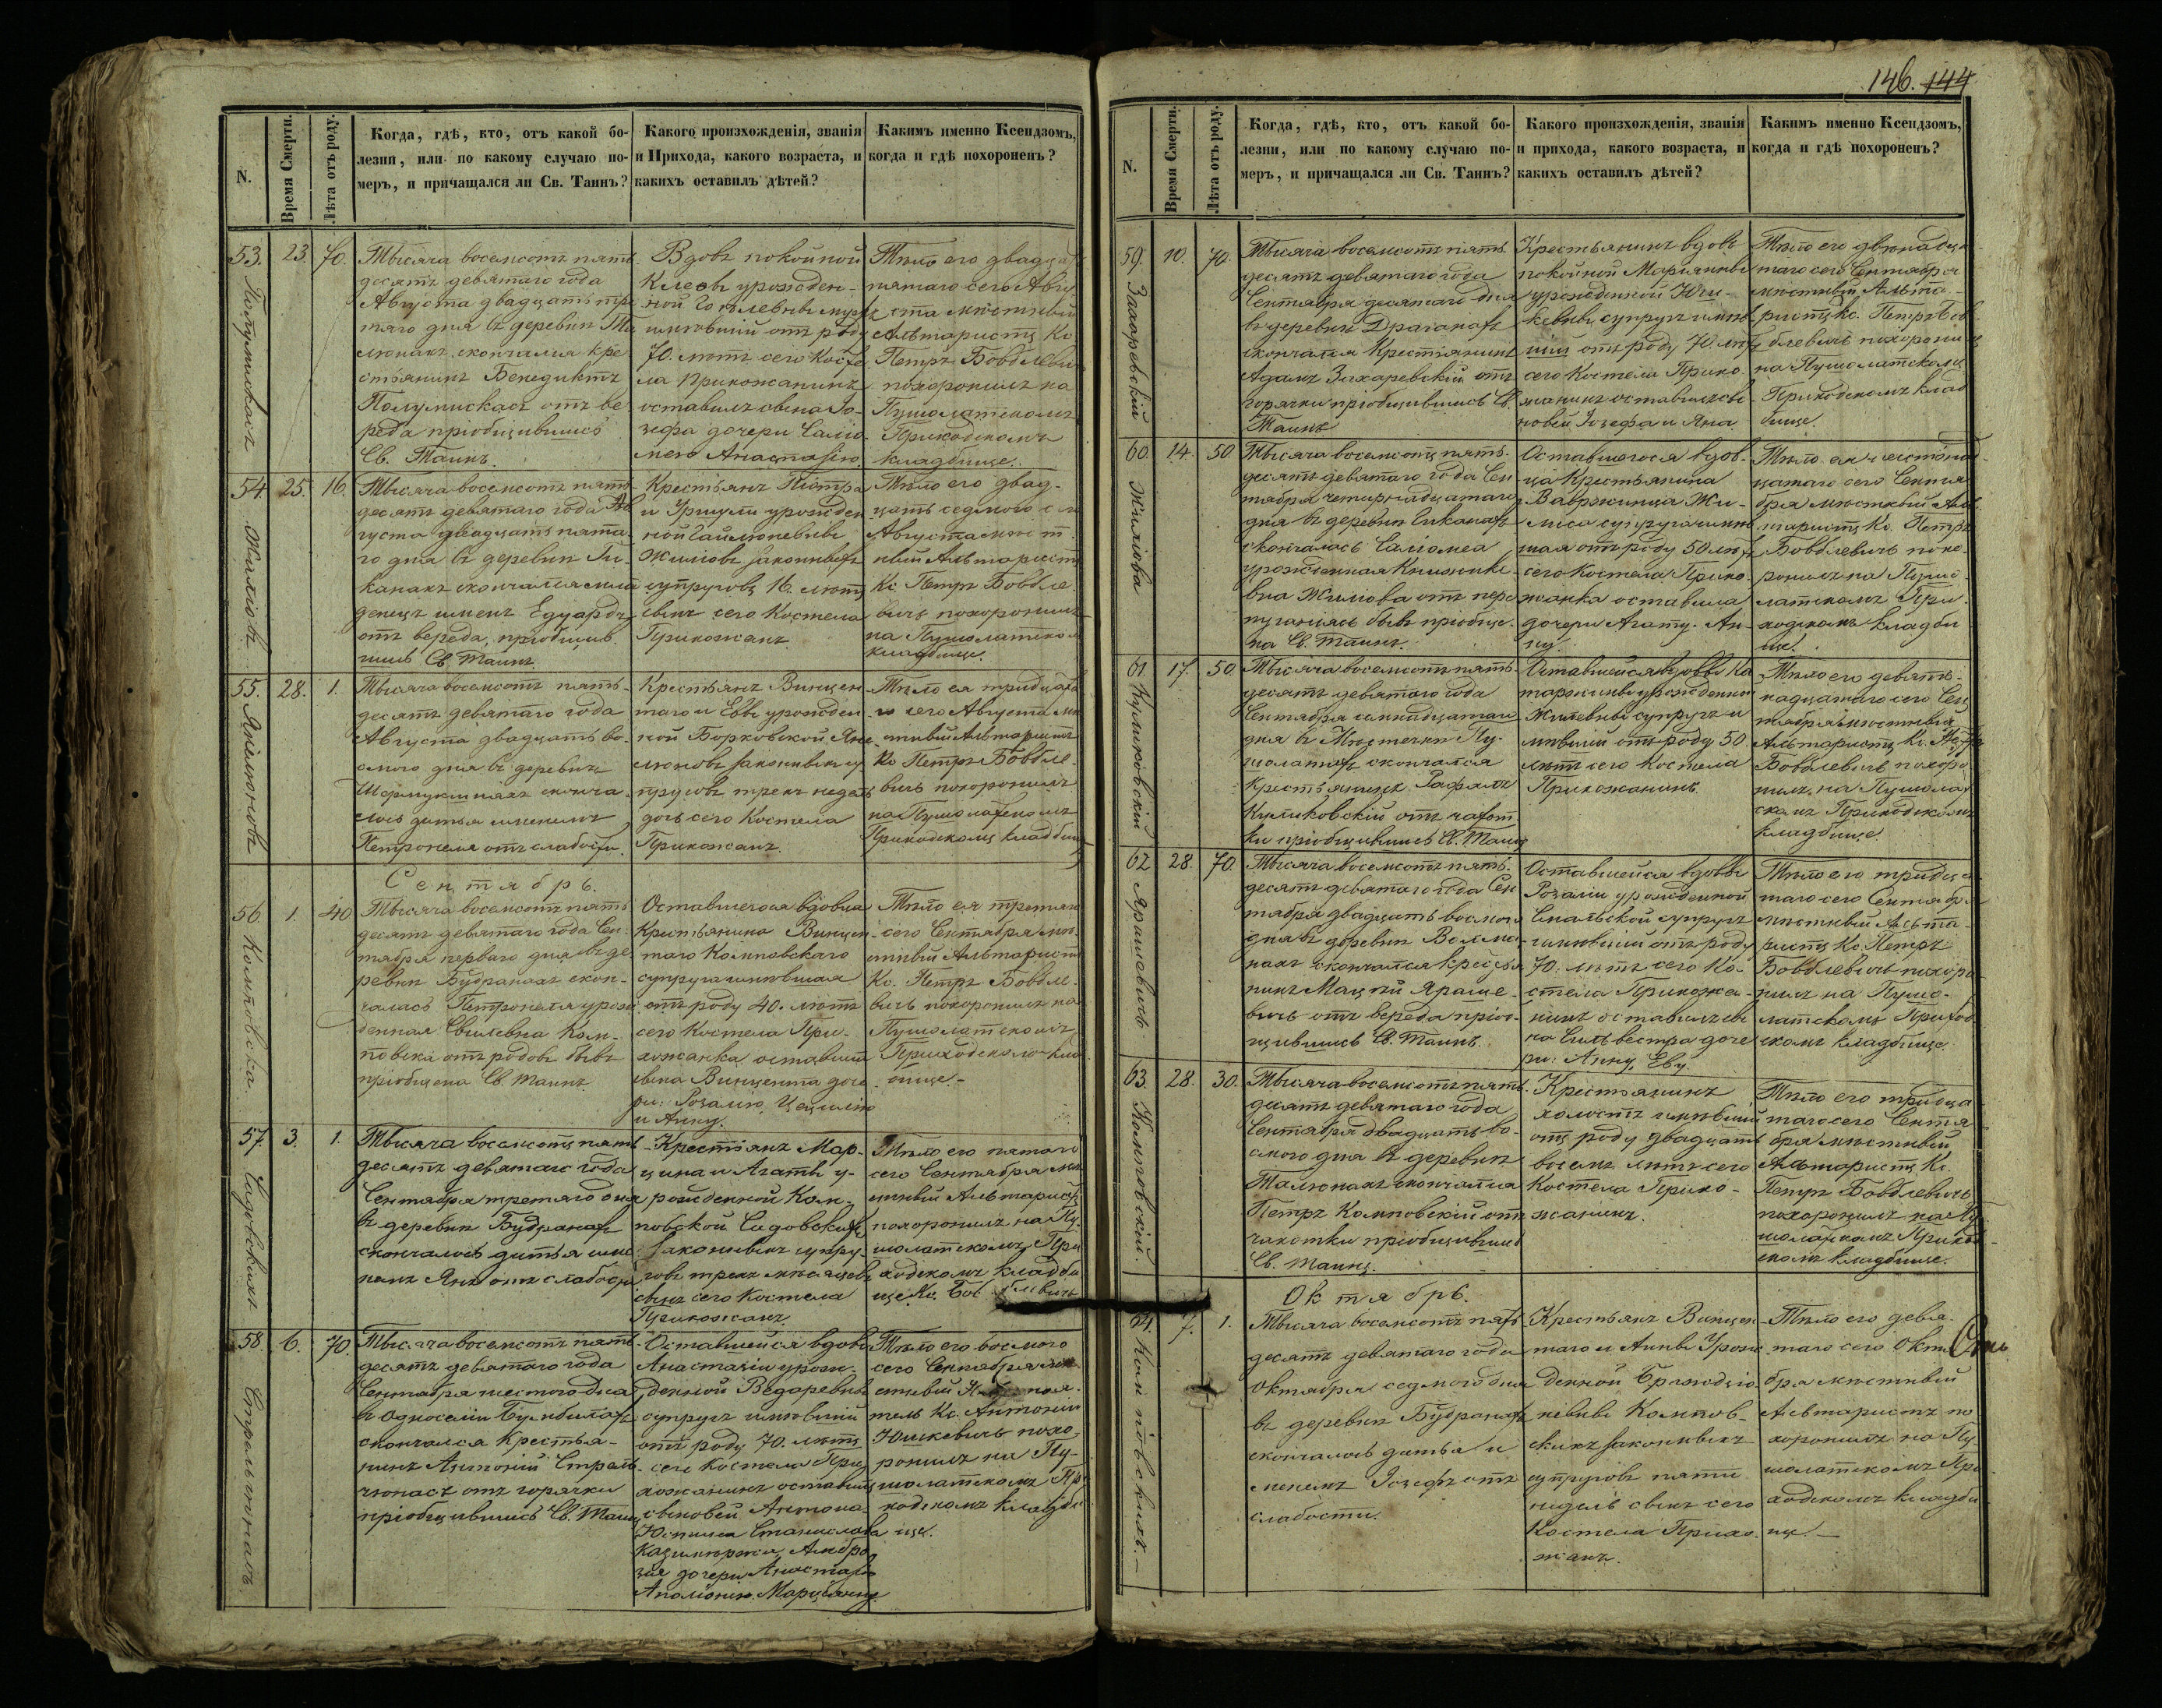 146. 144
N.
Время Смерти.
Лѣта отъ роду.
Когда, гдѣ, кто, отъ какой бо-
лезни, или по какому случаю по-
меръ, и причащался ли Св. Таинъ?
Какого произхожденія, званія
и Прихода, какого возраста, и
какихъ оставилъ дѣтей?
Какимъ именно Ксендзомъ,
когда и гдѣ похороненъ?
53. 23. 70.
Тысяча восемсотъ пять
десятъ девятаго года
Августа двадцать тре
тяго дня въ деревни
скончался кре
стьянинъ Бенедиктъ
отъ ве
реда пріобщившись
Св. Таинъ.
Вдовъ покойной
урожден-
ной
имѣвшій отъ роду
70. лѣтъ сего Косте
ла Прихожанинъ
оставилъ сына Іо-
зефа дочери Саліо
мею Анастазію
Тѣло его двадцать
пятаго сего Авгу
ста мѣстный
Альтаристъ Кс
Петръ Бовблевичъ
похоронилъ на
Пушолатскомъ
Приходскомъ
кладбище.
54 25. 16.
Тысяча восемсотъ пять
десятъ девятаго года Ав
густа двадцать пята
го дня въ деревни
скончался мла
денецъ именъ Едуардъ
отъ вереда, пріобщив
шись Св. Таинъ.
Крестьянъ Піотра
и Уршули урожден
ной
законныхъ
супруговъ 16. лѣтъ
сынъ сего Костела
Прихожанъ.
Тѣло его двад-
цать седмого сего
Августа мѣст
ный Альтаристъ
Кс Петръ Бовбле
вичъ похоронилъ
на Пушолатском
кладбище.
55. 28. 1.
Тысяча восемсотъ пять-
десятъ девятаго года
Августа двадцать во-
смого дня въ деревни
сконча
лось дитья именемъ
Петронеля отъ слабости.
Крестьянъ Винцен
таго и Евы урожден
ной Борковской Яни
люновъ законныхъ су
пруговъ трехъ недель
дочь сего Костела
Прихожанъ.
Тѣло ея тридцата
го сего Августа мѣ
стный Альтаристъ
Кс Петръ Бовбле
вичъ похоронилъ
на Пушолатскомъ
Приходскомъ кладбище
Сентябрь.
56. 1. 40
Тысяча восемсотъ пять
десятъ девятаго года Сен-
тября перваго дня въ де
ревни Будранахъ скон-
чалась Петронеля урож
денная Свилевна Комп-
повска отъ родовъ бывъ
пріобщена Св. Таинъ.
Оставшегося вдовца
Крестьянина Винцен
таго Комповскаго
супруга имѣвшая
отъ роду 40. лѣтъ
сего Костела При-
хожанка оставила
сына Винцента доче
ри: Розалію, Цецилію
и Анну.
Тѣло ея третяго
сего Сентября мѣ
стный Альтаристъ
Кс. Петръ Бовбле
вичъ похоронилъ на
Пушолатскомъ
Приходскомъ клад
бище.-
57. 3. 1.
Тысяча восемсотъ пять
десятъ девятаго года
Сентября третяго дня
въ деревни Будранахъ
скончалось дитья име
немъ Янъ отъ слабости
Крестьянъ Мар-
цина и Агаты у-
рожденной Ком-
повской Садовскихъ
законныхъ супру-
говъ трехъ мѣсяцевъ
сынъ сего Костела
Прихожанъ.
Тѣло его пятаго
сего Сентября мѣс
тный Альтаристъ
похоронилъ на Пу-
шолатскомъ При
ходскомъ кладби
ще Кс. Бовблевичъ
Садовскихъ
58 6. 70.
Тысяча восемсотъ пять
десятъ девятаго года
Сентября шестого дня
въ Односеліи
скончался Крестья-
нинъ Антоній Страль
чюнасъ отъ горячки
пріобщившись Св. Таинъ
Оставшейся вдовы
Анастазіи урож-
денной
супругъ имѣвшій
отъ роду 70. лѣтъ
сего Костела При
хожанинъ оставилъ
сыновей Антона
Юстина Станислава
Казимержа, Амбро
зія дочери Анастазію
Аполонію. Марціанну
Тѣло его восмого
сего Сентября мѣ
стный
Кс. Антоній
Юшкевичъ похо-
ронилъ на Пу-
шолатскомъ При
ходскомъ кладби
ще.
59. 10. 70.
Захаревскій
Тысяча восемсотъ пять
десятъ девятаго года
Сентября десятаго дня
въ деревни Драганахъ
скончался Крестьянинъ
Адамъ Захаревскій отъ
горячки пріобщившись Св.
Таинъ
Крестьянинъ вдовъ
покойной Маріянны
урожденной
супругъ имѣв
шій отъ роду 70. лѣтъ
сего Костела Прихо-
жанинъ оставилъ сы
новей Іозефа и Яна.
Тѣло его двѣнадца
таго сего Сентября
мѣстный Альта-
ристъ Кс. Петръ Бов
блевичъ похоронилъ
на Пушолатскомъ
Приходскомъ клад
бище.
60 14. 50
Тысяча восемсотъ пять-
десятъ девятаго года Сен
тября четырнадцатаго
дня въ деревни
скончалась Саліомея
урожденная
отъ пере
бывъ пріобще-
на Св. Таинъ.
Оставшегося вдов-
ца Крестьянина
Вавржинца Жи-
супруга имѣв
шая отъ роду 50 лѣтъ
сего Костела Прихо-
жанка оставила
дочери Агату. Ан-
ну.
Тѣло ея шестьнад
цатаго сего Сентя
бря мѣстный Аль
таристъ Кс. Петръ
Бовблевичъ похо-
ронилъ на Пушо-
латскомъ При
ходскомъ кладби
ще.
61 17. 50.
Куликовскій
Тысяча восемсотъ пять
десятъ девятаго года
Сентября семнадцатаго
дня въ Мѣстечки Пу-
шолатахъ скончался
Крестьянинъ Рафалъ
Куликовскій отъ чахот
ки пріобщившись Св. Таинъ
Оставшейся вдовы Ка
таржины урожденной
супругъ и
мѣвшій отъ роду 50
лѣтъ сего Костела
Прихожанинъ.
Тѣло его девять-
надцатаго сего Сен
тября мѣстный
Альтаристъ Кс. Петръ
Бовблевичъ похоро
нилъ на Пушолат
скомъ Приходскомъ
кладбище.
62 28. 70.
Ярашевичъ
Тысяча восемсотъ пять
десятъ девятаго года Сен
тября двадцать восмого
дня въ деревни
скончался Крестья
нинъ Мацѣй Яраше-
вичъ отъ вереда пріоб-
щившись Св. Таинъ.
Оставшейся вдовы
Розаліи урожденной
супругъ
имѣвшій отъ роду
70. лѣтъ сего Ко-
стела Прихожа-
нинъ оставилъ сы
на Сильвестра доче
ри: Анну, Еву.
Тѣло его тридца
таго сего Сентября
мѣстный Альта-
ристъ Кс. Петръ
Бовблевичъ похоро
нилъ на Пушо-
латскомъ Приход
скомъ кладбище.
63. 28. 30.
Комповскій.
Тысяча восемсотъ пять
десятъ девятаго года
Сентября двадцать во-
смого дня въ деревни
скончался
Петръ Комповскій отъ
чахотки пріобщившись
Св. Таинъ.
Крестьянинъ
холостъ имѣвшій
отъ роду двадцать
восемъ лѣтъ сего
Костела Прихо-
жанинъ.
Тѣло его тридца
таго сего Сентя
бря мѣстный
Альтаристъ Кс.
Петръ Бовблевичъ
похоронилъ на Пу
шолатскомъ Приход
скомъ кладбище.
Октябрь.
64. 7. 1.
Комповскихъ.-
Тысяча восемсотъ пять
десятъ девятаго года
Октября седмого дня
въ деревни Будранахъ
скончалось дитья и
менемъ Іозефъ отъ
слабости.
Крестьянъ Винцен
таго и Анны Урож
денной
Компов-
скихъ законныхъ
супруговъ пяти
недель сынъ сего
Костела Прихо-
жанъ.
Тѣло его девя-
таго сего Октя
бря мѣстный
Альтаристъ по
хоронилъ на Пу-
шолатскомъ При
ходскомъ кладби
ще.-